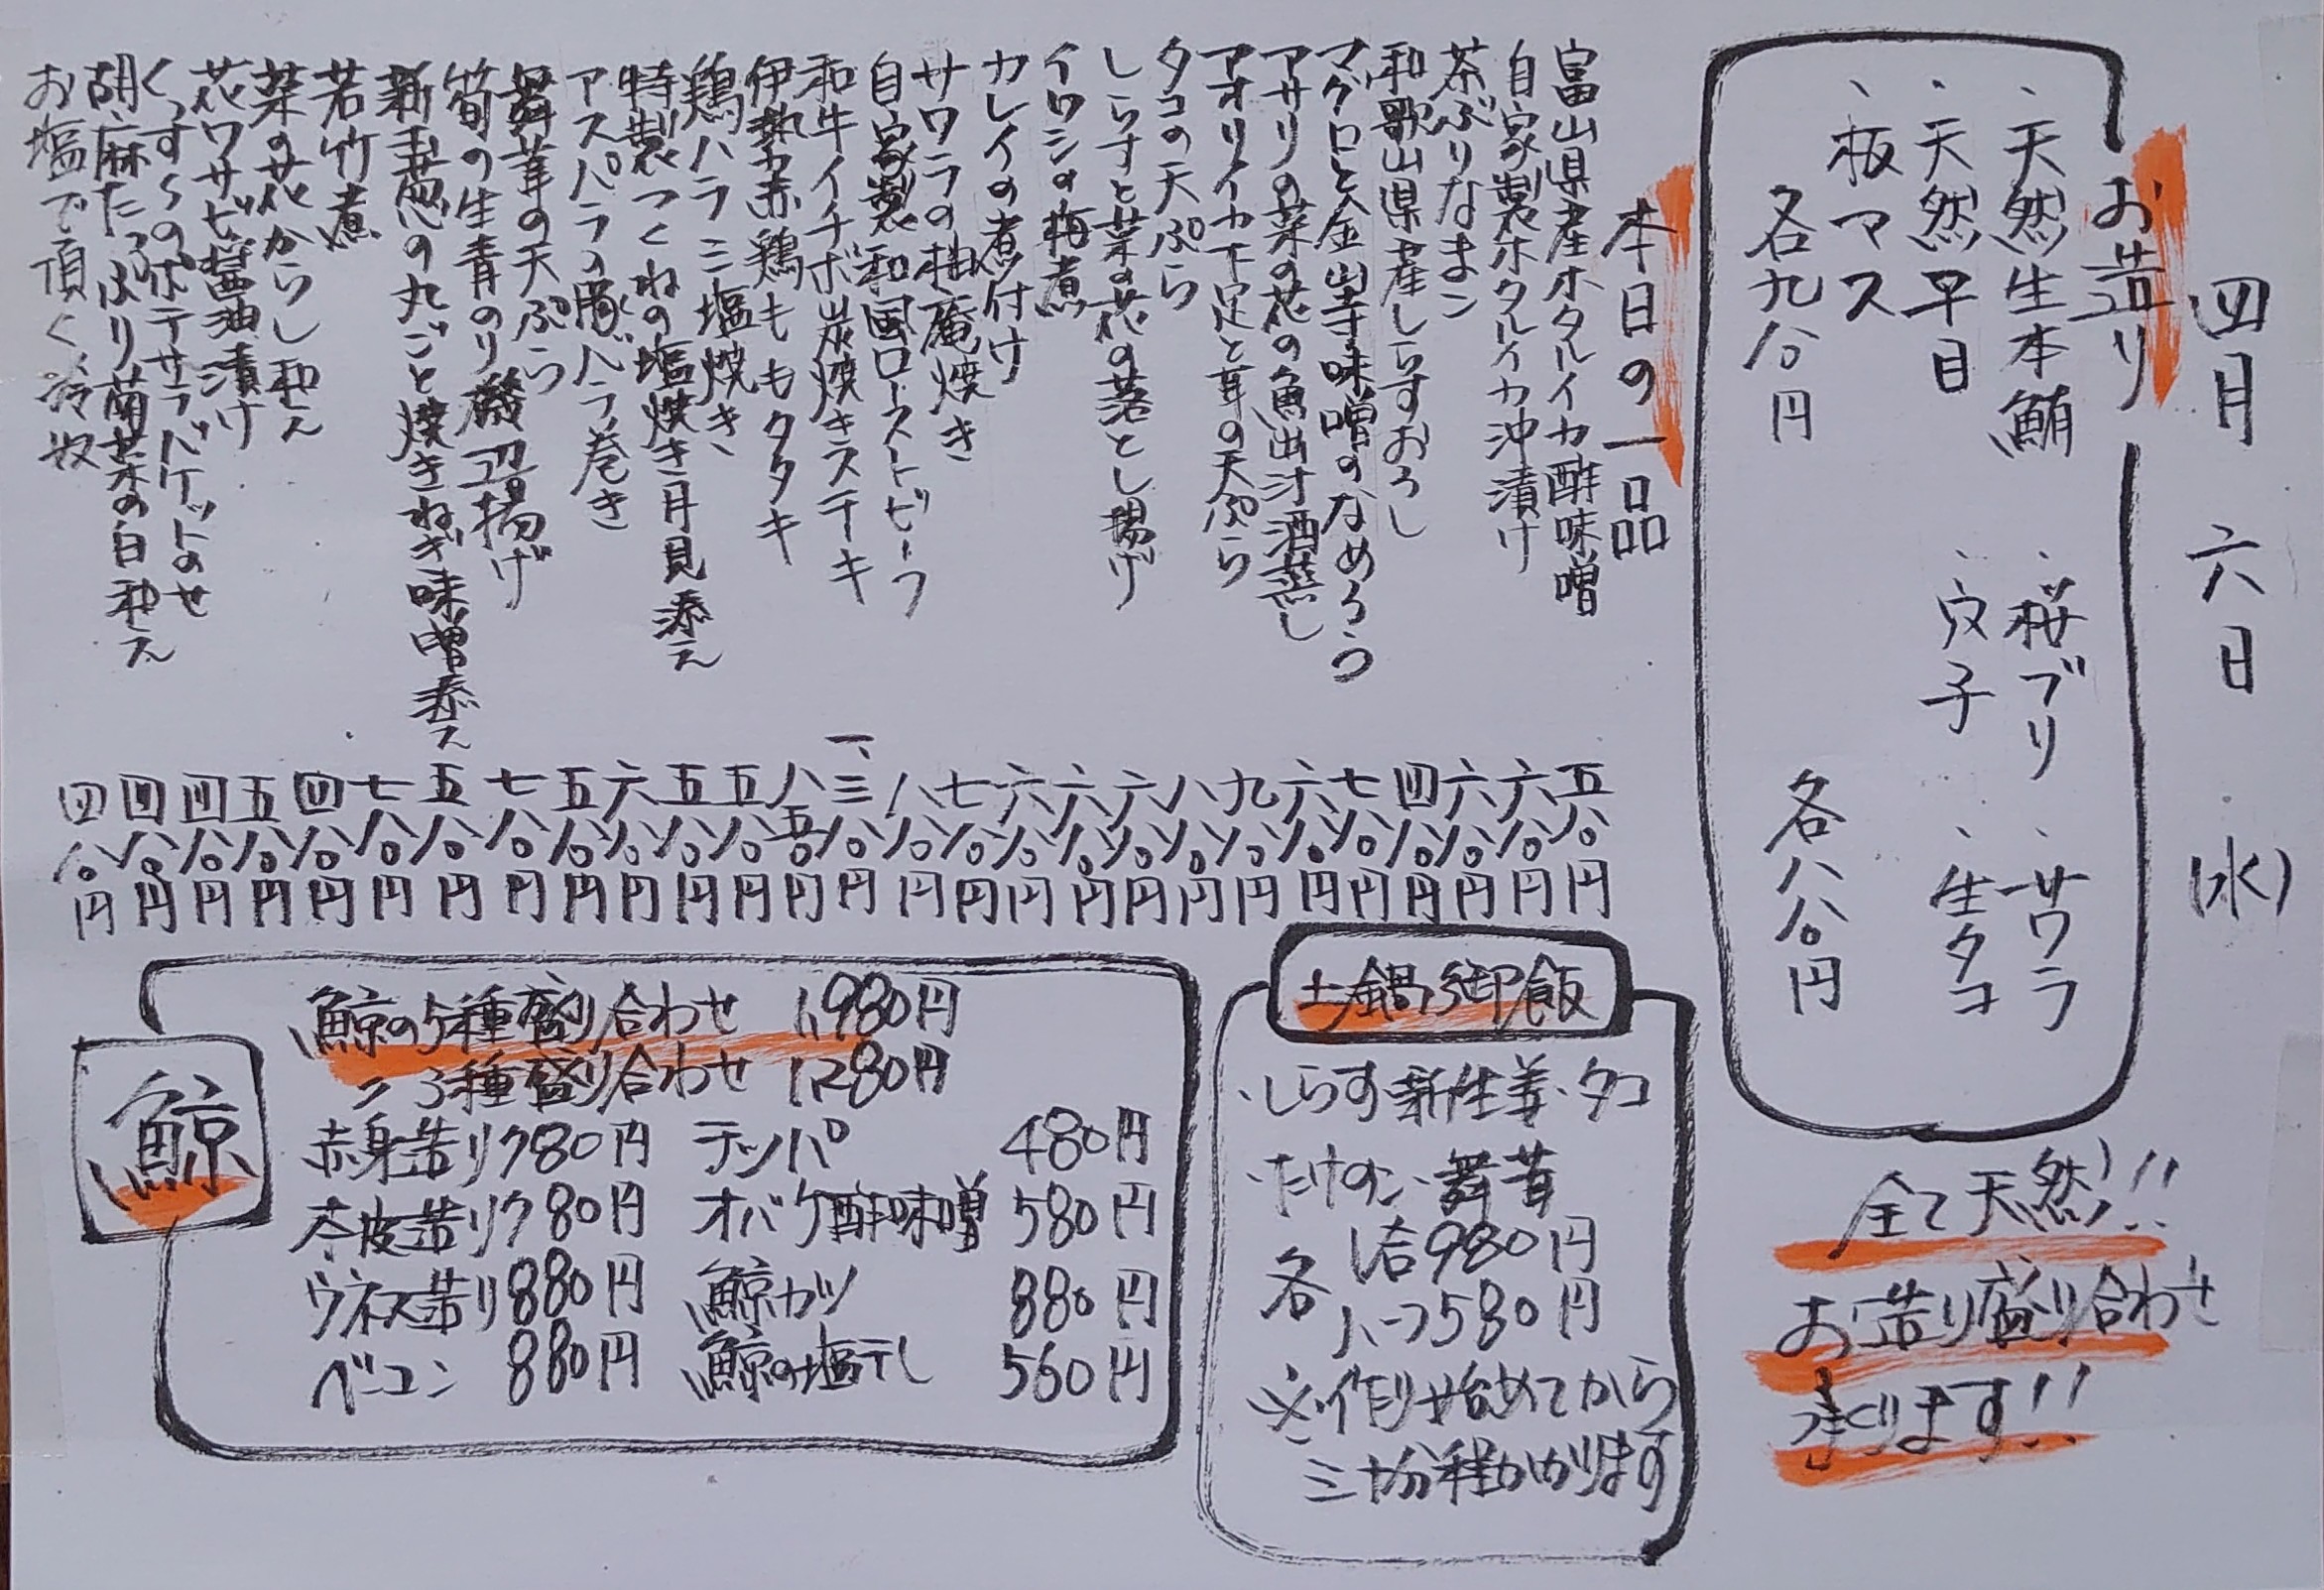 四月六日(水)
お造り
・天然生本鮪 ・桜ブリ ・サワラ
・天然平目 ・穴子 ・生タコ
・板マス
各九八〇円 各八八〇円
全て天然!!
お造り盛り合わせ
承ります!!
本日の一品
富山県産ホタルイカ酢味噌 五八〇円
自家製ホタルイカ沖漬け 六八〇円
茶ぶりなまこ 六八〇円
和歌山県産しらすおろし 四八〇円
マグロと金山寺味噌のなめろう 七八〇円
アサリの菜の花の魚出汁酒蒸し 六八〇円
アオリイカ下足と茸の天ぷら 九八〇円
タコの天ぷら 八八〇円
しらすと菜の花の落とし揚げ 六八〇円
イワシの梅煮 六八〇円
カレイの煮付け 六八〇円
サワラの柚庵焼き 七八〇円
自家製和風ローストビーフ 八八〇円
和牛イチボ炭焼きステキ 一、三八〇円
伊勢赤鶏ももタタキ 八五〇円
鶏ハラミ塩焼き 五八〇円
特製つくねの塩焼き月見添え 五八〇円
アスパラの豚バラ巻き 六八〇円
舞茸の天ぷら 五八〇円
筍の生青のり磯辺揚げ 七八〇円
新玉葱の丸ごと焼きねぎ味噌添え 五八〇円
若竹煮 七八〇円
菜の花からし和え 四八〇円
花ワサビ醤油漬け 五八〇円
くんすらのポテサラバケットのせ 四八〇円
胡麻たっぷり菊菜の白和え 四八〇円
お塩で頂く冷奴 四八〇円
土鍋御飯
・しらす新生姜・タコ
・たけのこ・舞茸
各 1合980円
ハーフ580円
※作り始めてから
三十分程かかります
鯨
鯨の5種盛り合わせ 1,980円
〃3種盛り合わせ 1,280円
赤身造り780円 テッパ 480円
本皮造り780円 オバケ酢味噌 580円
ウネス造り880円 鯨カツ 880円
ベーコン 880円 鯨の塩干し 560円